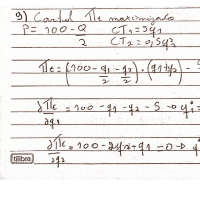 9) Conluf πc maximizado
P = 100 - Q/2 CT1 = 5q1
CT2 = 0,5q2²
πc = (100 - q1/2 - q2/2) . (q1+q2) -
∂πc/∂q1 = 100 - q1 - q2 - 5 = 0 → q1* =
∂πc/∂q2 = 100 - 2q2 - q1 = 0 →
tilibra